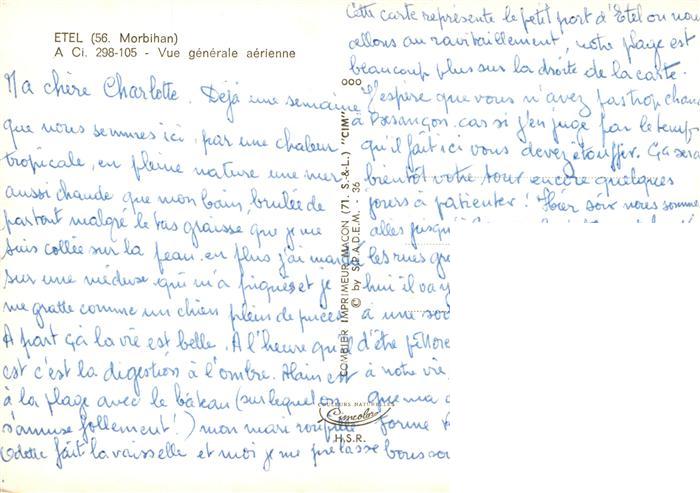 ETEL (56. Morbihan)
A Ci. 298-105 - Vue générale aérienne
Ma chère Charlotte. Déjà une semaine
que nous sommes ici, par une chaleur
tropicale, en pleine nature une mer
aussi chaude que mon bain, brulée de
partout malgré le gras que je me
suis collée sur la peau, en plus j'ai marché
sur une méduse qui m'a piquée et je
me gratte comme un chien plein de puces
A part ça la vie est belle. A l'heure qu'il
est c'est la digestion à l'ombre. Alain est
à la plage avec le bateau (sur lequel on
s'amuse follement!) mon mari
Odette fait la vaisselle et moi je me prélasse
Cette carte représente le petit port d'Etel ou nous
allons au ravitaillement, notre plage est
beaucoup plus sur la droite de la carte.
J'espère que vous n'avez pas trop chaud
à Besançon. car si j'en juge par le temps
qu'il fait ici vous devez étouffer. Ça sera
bientôt votre tour encore quelques
jours à patienter! Hier soir nous sommes
allés jusqu
les rues
hui il va
à une
d'être
à notre
que ma
forme
bons
COMBIER IMPRIMEUR MACON (71. S.-&-L.) "CIM"
© by S.P.A.D.E.M. - 36
COULEURS NATURELLES
Cimcolor
H.S.R.